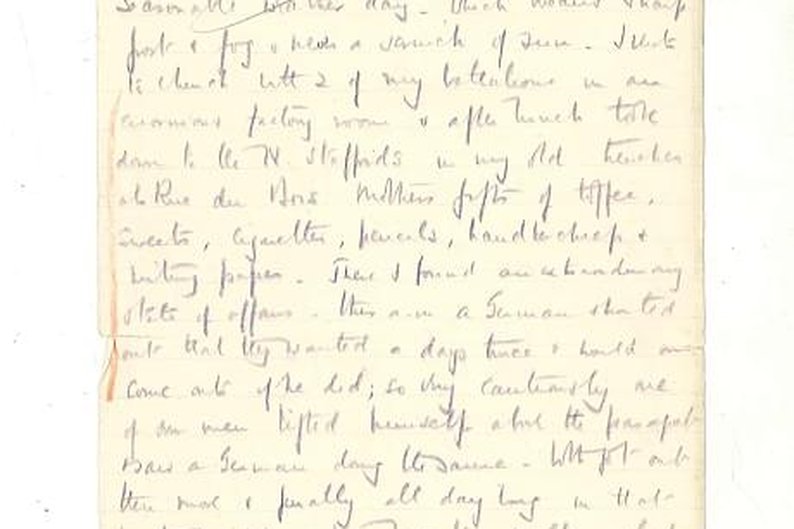 seasonable weather day - which means sharp
frost & fog & never a scrunch of sun. I went
to church with 2 of my battalions in an
enormous factory room & after lunch took
down to the N. Staffords in my old trenches
at Rue du Bois Mothers gifts of toffee,
sweets, cigarettes, pencils, handkerchiefs &
writing paper. There I found an extraordinary
state of affairs - this a.m. a German shouted
out that they wanted a days truce & would one
come out if he did; so very cautiously one
of our men lifted himself above the parapet
& saw a German doing the same. Both got out
then more & finally all day long in that